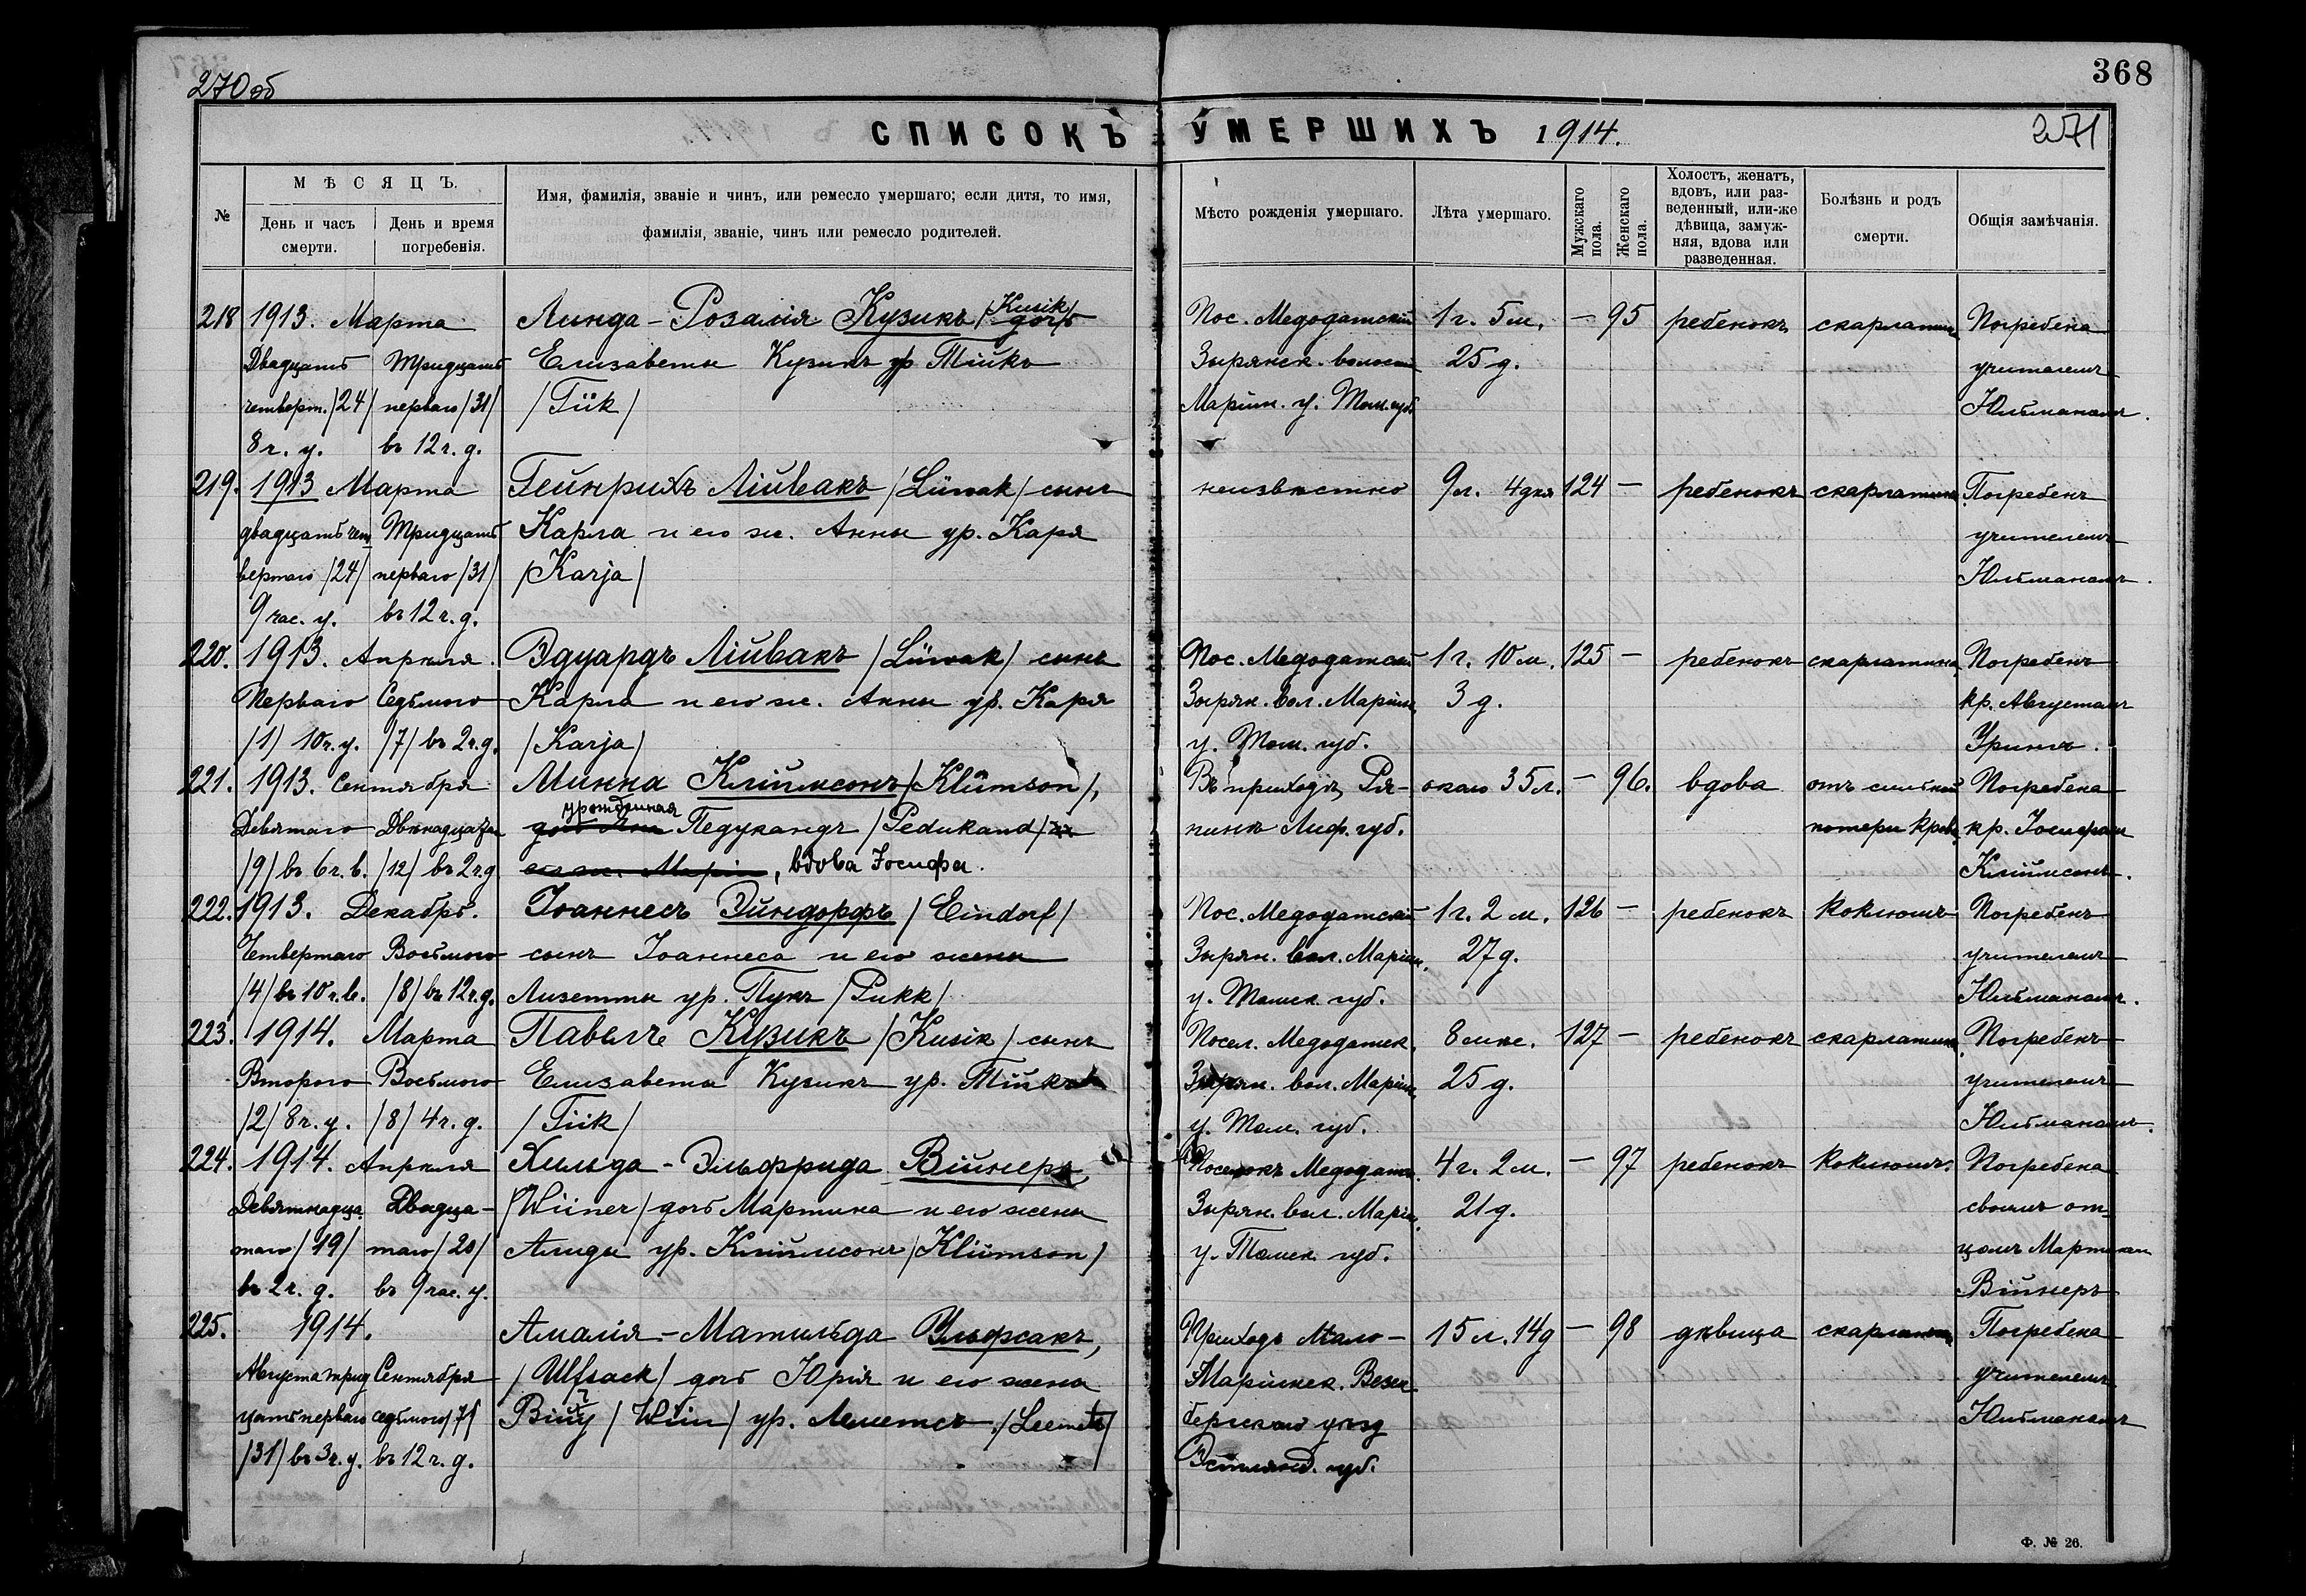 270 об
368
СПИСОКЪ УМЕРШИХЪ 1914.
271
№
МѢСЯЦЪ.
День и часъ смерти.
День и время погребенія.
Имя, фамилія, званіе и чинъ, или ремесло умершаго; если дитя, то имя,
фамилія, званіе, чинъ или ремесло родителей.
Мѣсто рожденія умершаго.
Лѣта умершаго.
Мужскаго пола.
Женскаго пола.
Холостъ, женатъ,
вдовъ, или раз-
веденный, или-же
дѣвица, замуж-
няя, вдова или
разведенная.
Болѣзнь и родъ
смерти.
Общія замѣчанія.
218 1913. Марта Линда-Розалія Кузикъ /Kusik/ дочь Пос. Медодатскій 1 г. 5 м. — 95 ребенокъ скарлатина Погребена
Двадцать Тридцать Елизаветы Кузикъ ур. Тійкъ Зырянск. волости 25 д. учителемъ
четверт. /24/ перваго /31/ /Tiik/ Маріин. у. Том. губ. Юльманомъ.
8 ч. у. въ 12 ч. д.
219. 1913 Марта Гейнрихъ Лійвакъ /Liiwak/ сынъ неизвѣстно 9 л. 4 дня 124 — ребенокъ скарлатина Погребенъ
двадцать чет Тридцать Карла и его ж. Анны ур. Каря учителемъ
вертаго /24/ перваго /31/ /Karja/ Юльманомъ.
9 час. у. въ 12 ч. д.
220. 1913. Апрѣля. Эдуардъ Лійвакъ /Liiwak/ сынъ Пос. Медодатскій 1 г. 10 м. 125 — ребенокъ скарлатина Погребенъ
Перваго Седьмого Карла и его ж. Анны ур. Каря Зырян. вол. Маріин. 3 д. кр. Августомъ
/1/ 10 ч. у. /7/ въ 2 ч. д. /Karja/ у. Том. губ.
221. 1913. Сентября Минна КлійМсонъ /Kliimson/, Въ приходѣ Ря- около 35 л. — 96. вдова отъ сильной Погребена
урожденная
Девятаго Двѣнадцатаго Педукандъ /Pedukand/ пинѣ Лифл. губ. потери крови кр. Іосифомъ
/9/ въ 6 ч. в. /12/ въ 2 ч. д. его ж. Маріи, вдова Іосифа. Клійmсонъ.
222. 1913. Декабрь. Іоаннесъ Эйндорфъ /Eindorf/ Пос. Медодатскій 1 г. 2 м. 126 — ребенокъ коклюшъ Погребенъ
Четвертаго Восьмого сынъ Іоаннеса и его жены Зырян. вол. Маріин. 27 д. учителемъ
/4/ въ 10 ч. в. /8/ въ 12 ч. д. Лизетты ур. Пукъ /Pukk/ у. Томск. губ. Юльманомъ.
223. 1914. Марта Павелъ Кузикъ /Kusik/ сынъ Посел. Медодатск. 8 мѣс. 127 — ребенокъ скарлатина Погребенъ
Второго Восьмого Елизаветы Кузикъ ур. Тійкъ Зырян. вол. Маріин. 25 д. учителемъ
/2/ 8 ч. у. /8/ 4 ч. д. /Tiik/ у. Том. губ. Юльманомъ.
224. 1914. Апрѣля Хильда-Эльфрида Війнеръ Поселокъ Медодатск. 4 г. 2 м. — 97 ребенокъ коклюшъ. Погребена
Девятнадца Двадца- /Wiiner/ дочь Мартина и его жены Зырян. вол. Маріин. 21 д. своимъ от-
таго /19/ таго /20/ Алиды ур. Клійmсонъ /Kliimson/ у. Томск. губ. цомъ Мартиномъ
въ 2 ч. д. въ 9 час. у. Війнеръ
225. 1914. Амалія-Матильда Ульфсакъ, Приходъ Мало- 15 л. 14 д — 98 дѣвица скарлатина Погребена
Августа трид Сентября /Ulfsack/ дочь Юрія и его жены Маріинск. Везен учителемъ
цать перваго седьмого /7/ Війу /Wiiu/ ур. Леметсъ /Leemets/ бергскаго уѣзд Юльманомъ
/31/ въ 3 ч. у. въ 12 ч. д. Эстлянд. губ.
Ф. № 26.